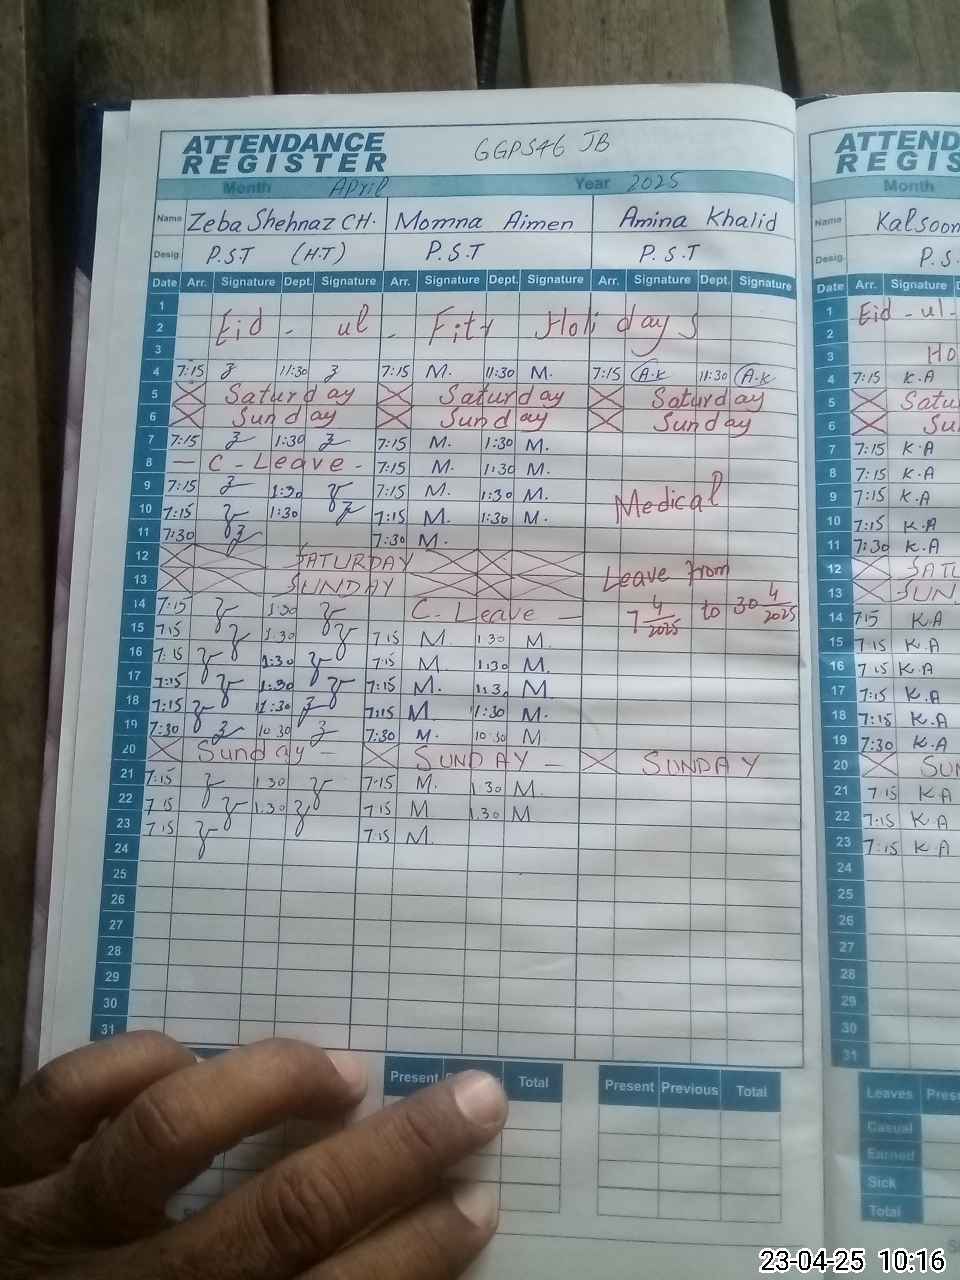 ATTENDANCE REGISTER GGPS46 JB
Month April Year 2025
Name Zeba Shehnaz CH. Momna Aimen Amina Khalid
Desig. P.S.T (H.T) P.S.T P.S.T
Date Arr. Signature Dept. Signature Arr. Signature Dept. Signature Arr. Signature Dept. Signature
1
2 Eid - ul - Fitr Holidays
3
4 7:15 11:30 7:15 M. 11:30 M. 7:15 A.K 11:30 A.K
5 Saturday Saturday Saturday
6 Sunday Sunday Sunday
7 7:15 1:30 7:15 M. 1:30 M.
8 - C - Leave - 7:15 M. 1:30 M.
9 7:15 1:30 7:15 M. 1:30 M. Medical
10 7:15 1:30 7:15 M. 1:30 M.
11 7:30 7:30 M.
12 SATURDAY Leave from
13 SUNDAY 7 4/2025 to 30 4/2025
14 7:15 1:30 C. Leave -
15 7:15 1.30 7:15 M. 1.30 M.
16 7:15 1:30 7:15 M. 1:30 M.
17 7:15 1:30 7:15 M. 1:30 M
18 7:15 1:30 7:15 M. 1:30 M.
19 7:30 10:30 7:30 M. 10:30 M
20 Sunday - SUNDAY - SUNDAY
21 7:15 1.30 7:15 M. 1.30 M.
22 7:15 1.30 7:15 M 1.30 M
23 7:15 7:15 M.
24
25
26
27
28
29
30
31
Present Total Present Previous Total
ATTEND
REGIS
Month
Name Kalsoom
Desig. P.S.
Date Arr. Signature
1 Eid - ul -
2
3 Ho
4 7:15 K.A
5 Satu
6 Su
7 7:15 K.A
8 7:15 K.A
9 7:15 K.A
10 7:15 K.A
11 7:30 K.A
12 SATU
13 SUN
14 7:15 K.A
15 7:15 K.A
16 7:15 K.A
17 7:15 K.A
18 7:15 K.A
19 7:30 K.A
20 SUN
21 7:15 K.A
22 7:15 K.A
23 7:15 K.A
24
25
26
27
28
29
30
31
Leaves Pres
Casual
Earned
Sick
Total
23-04-25 10:16